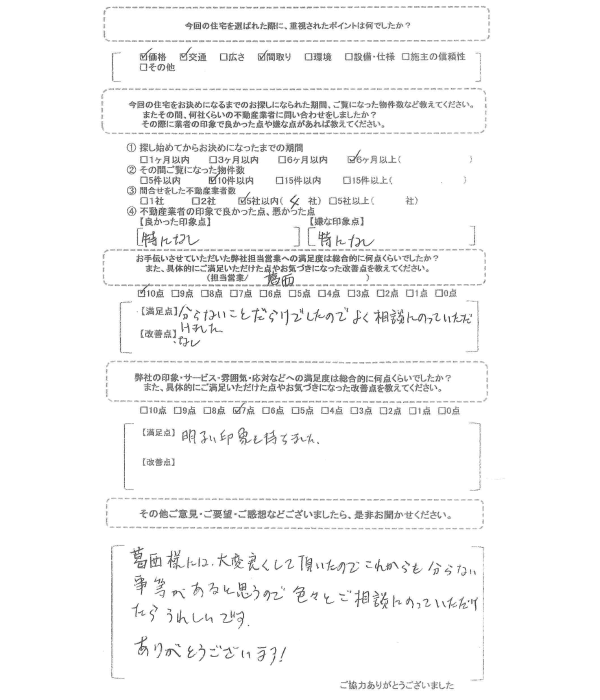 今回の住宅を選ばれた際に、重視されたポイントは何でしたか？
☑価格 ☑交通 □広さ ☑間取り □環境 □設備・仕様 □施主の信頼性
□その他
今回の住宅をお決めになるまでのお探しになられた期間、ご覧になった物件数など教えてください。
またその間、何社くらいの不動産業者に問い合わせをしましたか？
その際に業者の印象で良かった点や嫌な点があれば教えてください。
① 探し始めてからお決めになったまでの期間
□1ヶ月以内 □3ヶ月以内 □6ヶ月以内 ☑6ヶ月以上( )
② その間ご覧になった物件数
□5件以内 ☑10件以内 □15件以内 □15件以上( )
③ 問合せをした不動産業者数
□1社 □2社 ☑5社以内( 4 社) □5社以上( 社)
④ 不動産業者の印象で良かった点、悪かった点
【良かった印象点】 【嫌な印象点】
特になし 特になし
お手伝いさせていただいた弊社担当営業への満足度は総合的に何点くらいでしたか？
また、具体的にご満足いただけた点やお気づきになった改善点を教えてください。
(担当営業/ 葛西 )
☑10点 □9点 □8点 □7点 □6点 □5点 □4点 □3点 □2点 □1点 □0点
【満足点】分らないことだらけでしたのでよく相談にのっていただ
けました
【改善点】なし
弊社の印象・サービス・雰囲気・応対などへの満足度は総合的に何点くらいでしたか？
また、具体的にご満足いただけた点やお気づきになった改善点を教えてください。
□10点 □9点 □8点 ☑7点 □6点 □5点 □4点 □3点 □2点 □1点 □0点
【満足点】明るい印象を持ちました.
【改善点】
その他ご意見・ご要望・ご感想などございましたら、是非お聞かせください。
葛西様には、大変良くして頂いたのでこれからも分らない
事等があると思うので色々とご相談にのっていただけ
たらうれしいです.
ありがとうございます!
ご協力ありがとうございました